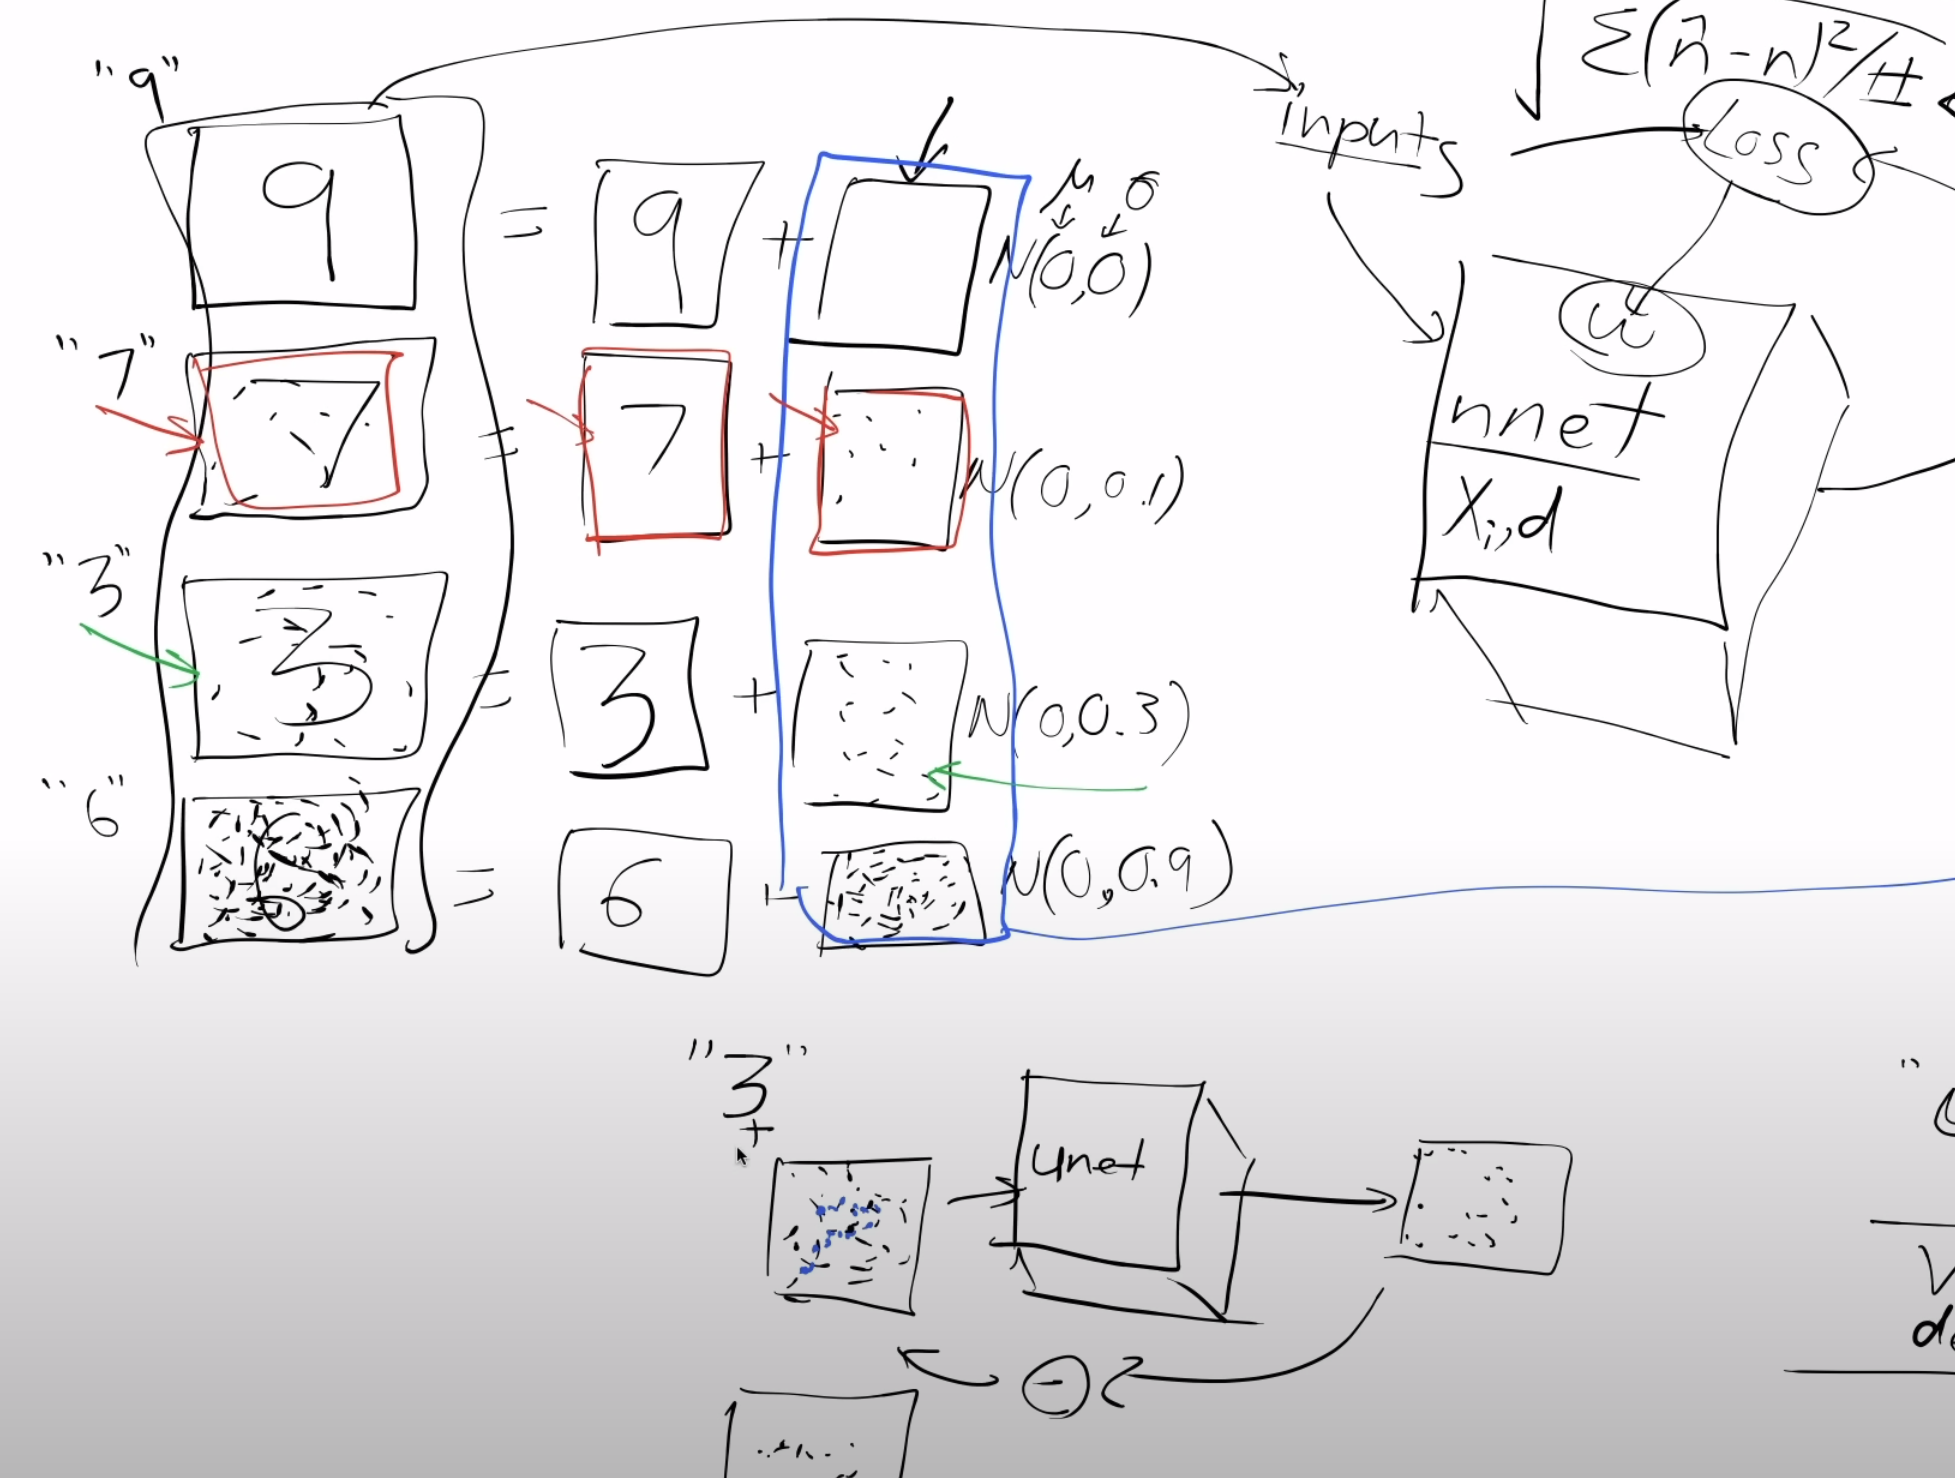 "9"
9 = 9 + N(0,0)
μ σ
"7"
7 = 7 + N(0,0.1)
"3"
3 = 3 + N(0,0.3)
"6"
6 = 6 + N(0,0.9)
inputs
Σ(n̂-n)²/#
Loss
w
nnet
Xi,d
"3"
+
unet
-